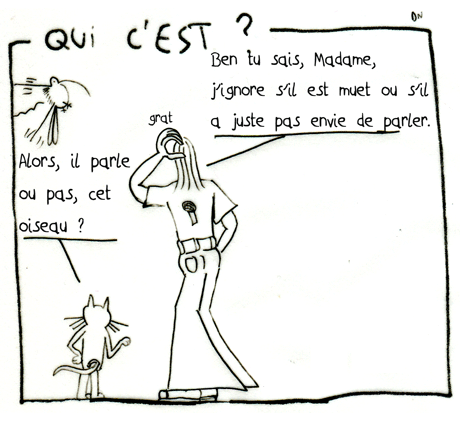 QUI C'EST ?
DN
Ben tu sais, Madame,
j'ignore s'il est muet ou s'il
a juste pas envie de parler.
grat
Alors, il parle
ou pas, cet
oiseau ?